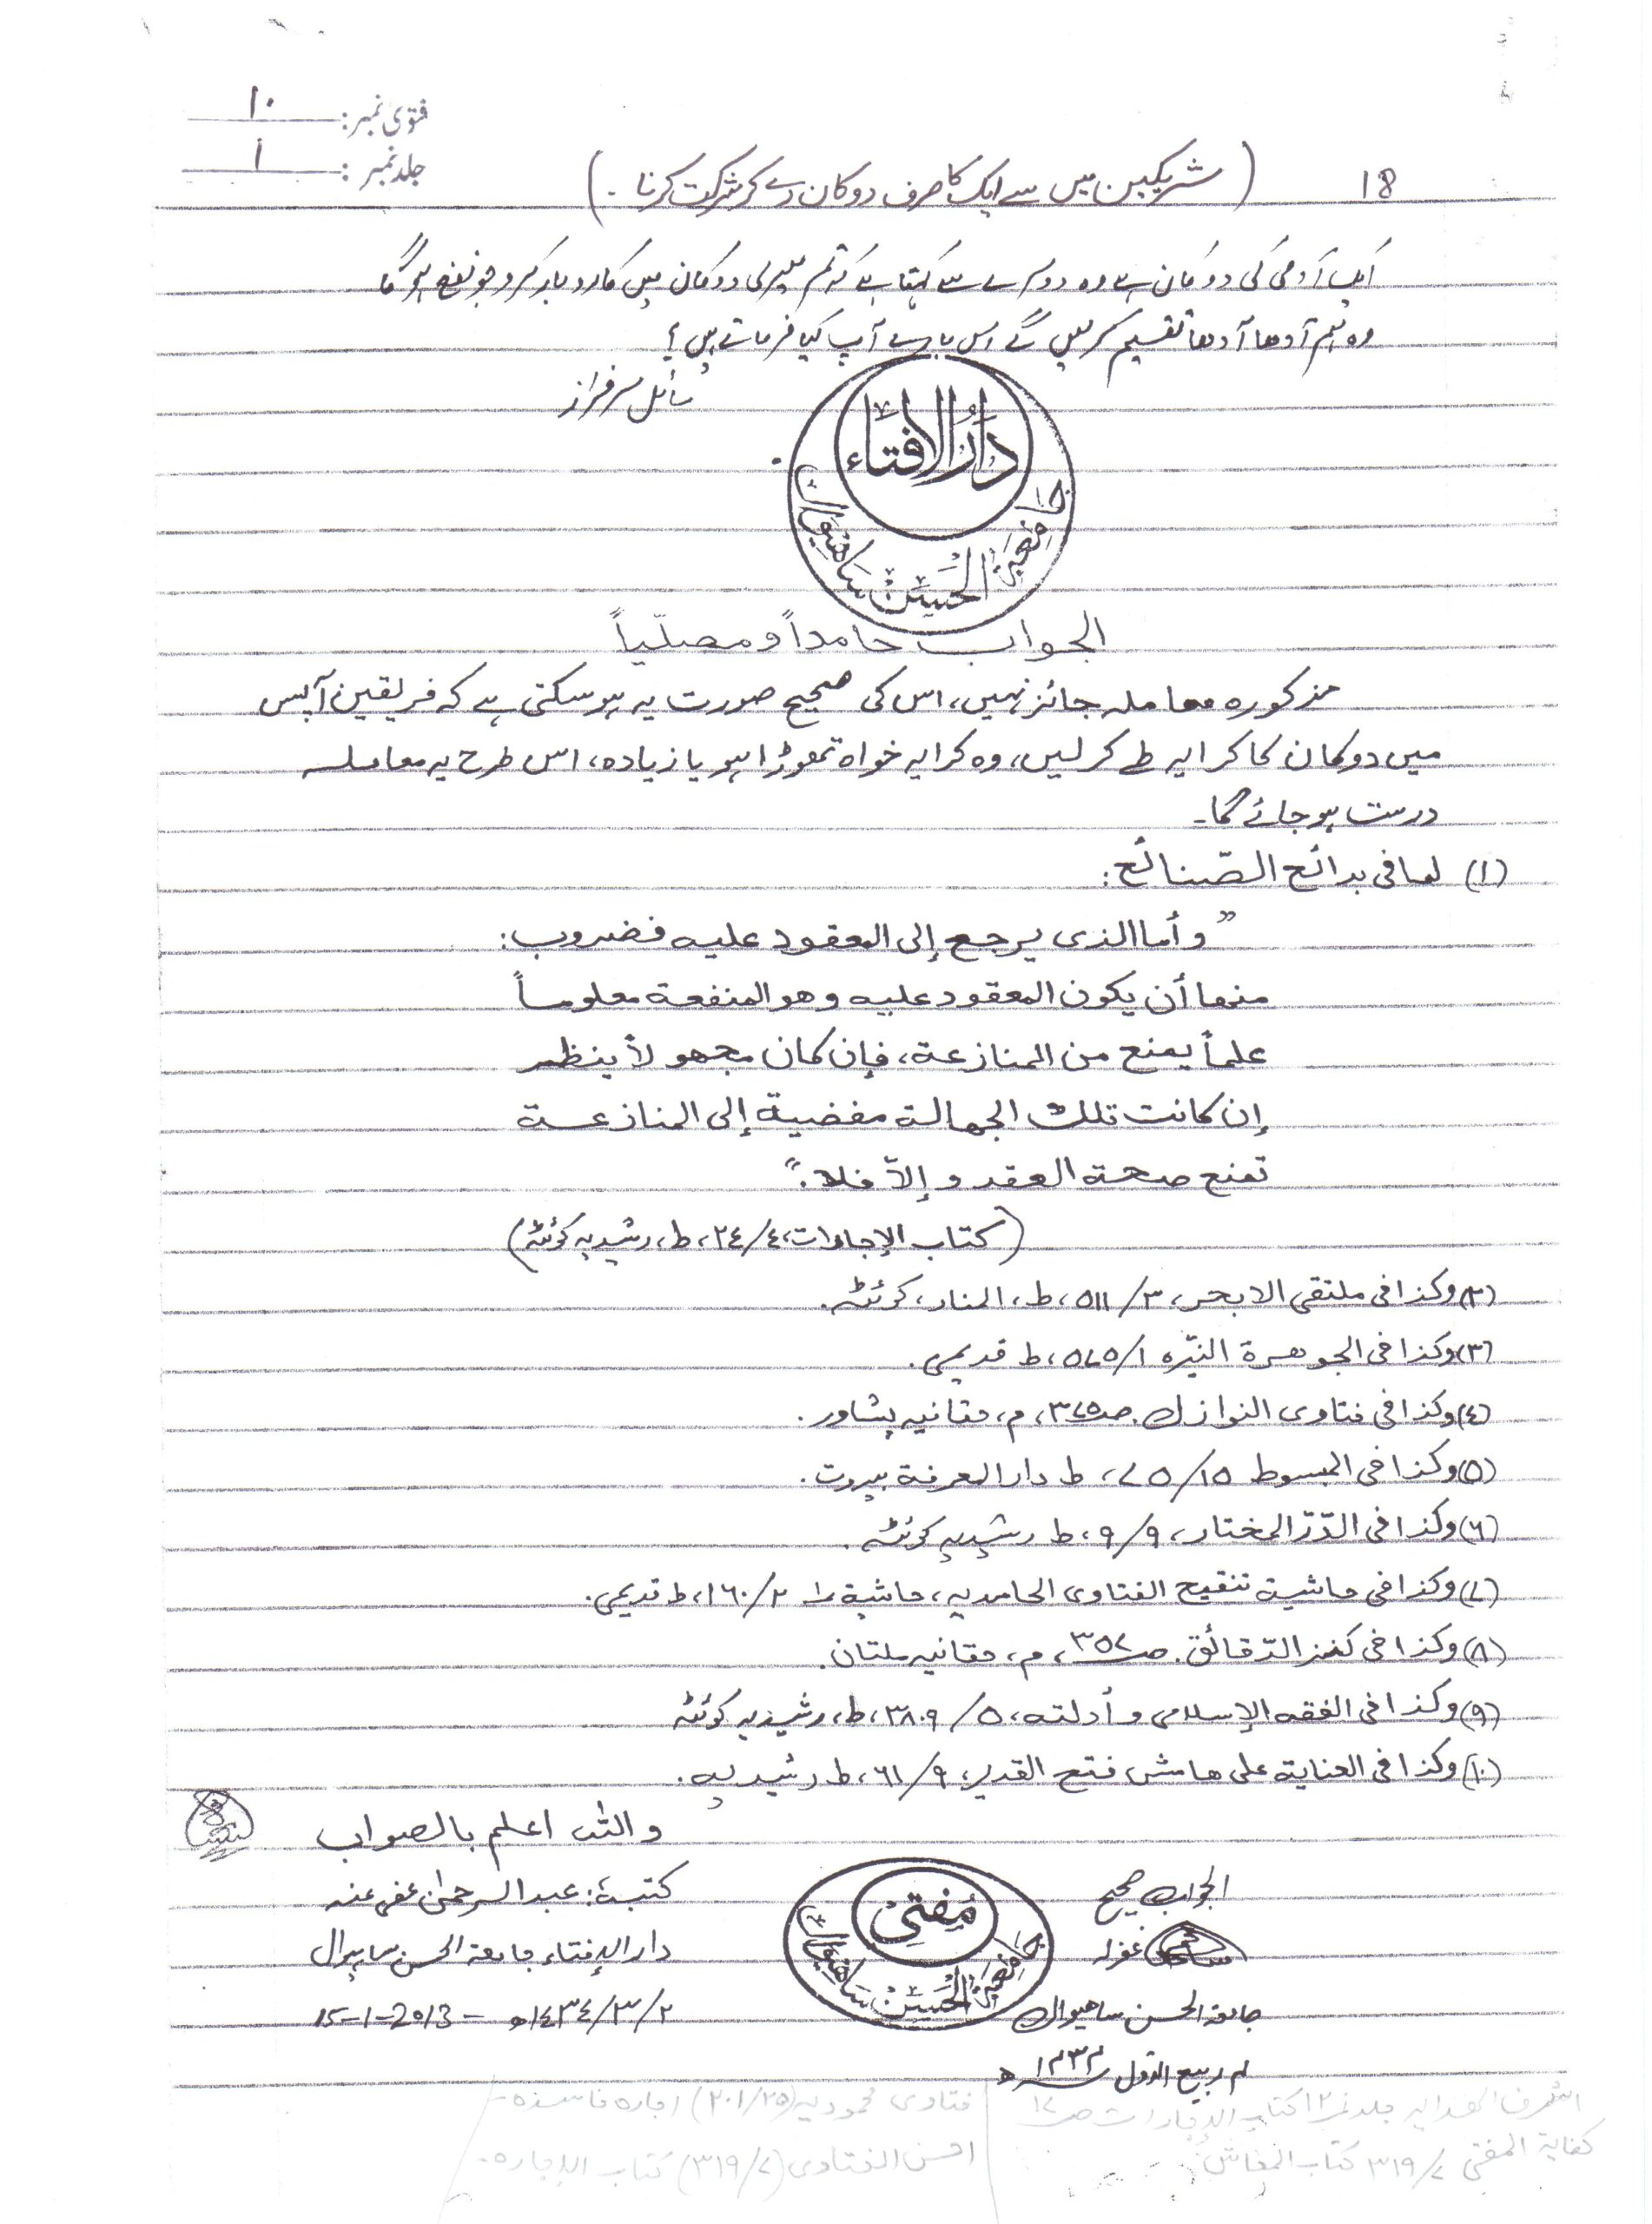 فتوی نمبر: ۱۰
جلد نمبر: ۱
18 (شریکین میں سے ایک کا صرف دوکان دے کر شرکت کرنا۔)
ایک آدمی کی دوکان ہے وہ دوسرے سے کہتا ہے کہ تم میری دوکان میں کاروبار کرو جو نفع ہو گا
وہ ہم آدھا آدھا تقسیم کر لیں گے اس بارے آپ کیا فرماتے ہیں؟
سائل سرفراز
دارالافتاء
جامعة الحسن ساھیوال
الجواب حامداً و مصلّیاً
مذکورہ معاملہ جائز نہیں، اس کی صحیح صورت یہ ہو سکتی ہے کہ فریقین آپس
میں دوکان کا کرایہ طے کر لیں، وہ کرایہ خواہ تھوڑا ہو یا زیادہ، اس طرح یہ معاملہ
درست ہو جائے گا۔
(۱) لما فی بدائع الصّنائع:
”وأما الذی یرجع إلی المعقود علیه فضروب:
منها أن یکون المعقود علیه وهو المنفعة معلوماً
علماً یمنع من المنازعة، فإن کان مجهولاً ینظر
إن کانت تلك الجهالة مفضیة إلی المنازعة
تمنع صحة العقد و إلاّ فلا.“
(کتاب الإجارات، ٢٤/٤، ط، رشیدیہ کوئٹہ)
(۲) وکذا فی ملتقی الابحر، ۳/ ۵۱۱، ط، المنار، کوئٹہ.
(۳) وکذا فی الجوهرة النیّرہ ۱/ ۵۷۵، ط قدیمی.
(٤) وکذا فی فتاوی النوازل صـ۳۷۵، م، حقانیہ پشاور.
(۵) وکذا فی المبسوط ۱۵/ ۷۵، ط دار المعرفة بیروت.
(٦) وکذا فی الدّر المختار، ۹/ ۹، ط رشیدیہ کوئٹہ.
(۷) وکذا فی حاشیة تنقیح الفتاوی الحامدیہ، حاشیة ۱ ۲/ ۱٦۰، ط قدیمی.
(۸) وکذا فی کنز الدّقائق. صـ۳۵۷، م، حقانیہ ملتان.
(۹) وکذا فی الفقه الإسلامی و أدلته، ۵/ ۳۸۰۹، ط، رشیدیہ کوئٹہ
(۱۰) وکذا فی العنایة علی هامش فتح القدیر، ۹/ ٦۱، ط رشیدیہ.
واللہ اعلم بالصواب
الجواب صحیح
غفرلہ
جامعة الحسن ساھیوال
ربیع الاول
مفتی
جامعة الحسن ساھیوال
کتبہ: عبدالرحمٰن عفی عنہ
دارالإفتاء جامعة الحسن ساہیوال
۲/۳/۱٤۳٤ھ - 15-1-2013
اشرف الهدایہ جلد نمبر ۱۲ کتاب الإجارات صـ۱۷
کفایة المفتی ۷/ ۳۱۹ کتاب المعاش
فتاوی محمودیہ (۲۵/ ۲۰۱) اجارہ فاسدہ۔
احسن الفتاوی (۷/ ۳۱۹) کتاب الاجارہ۔